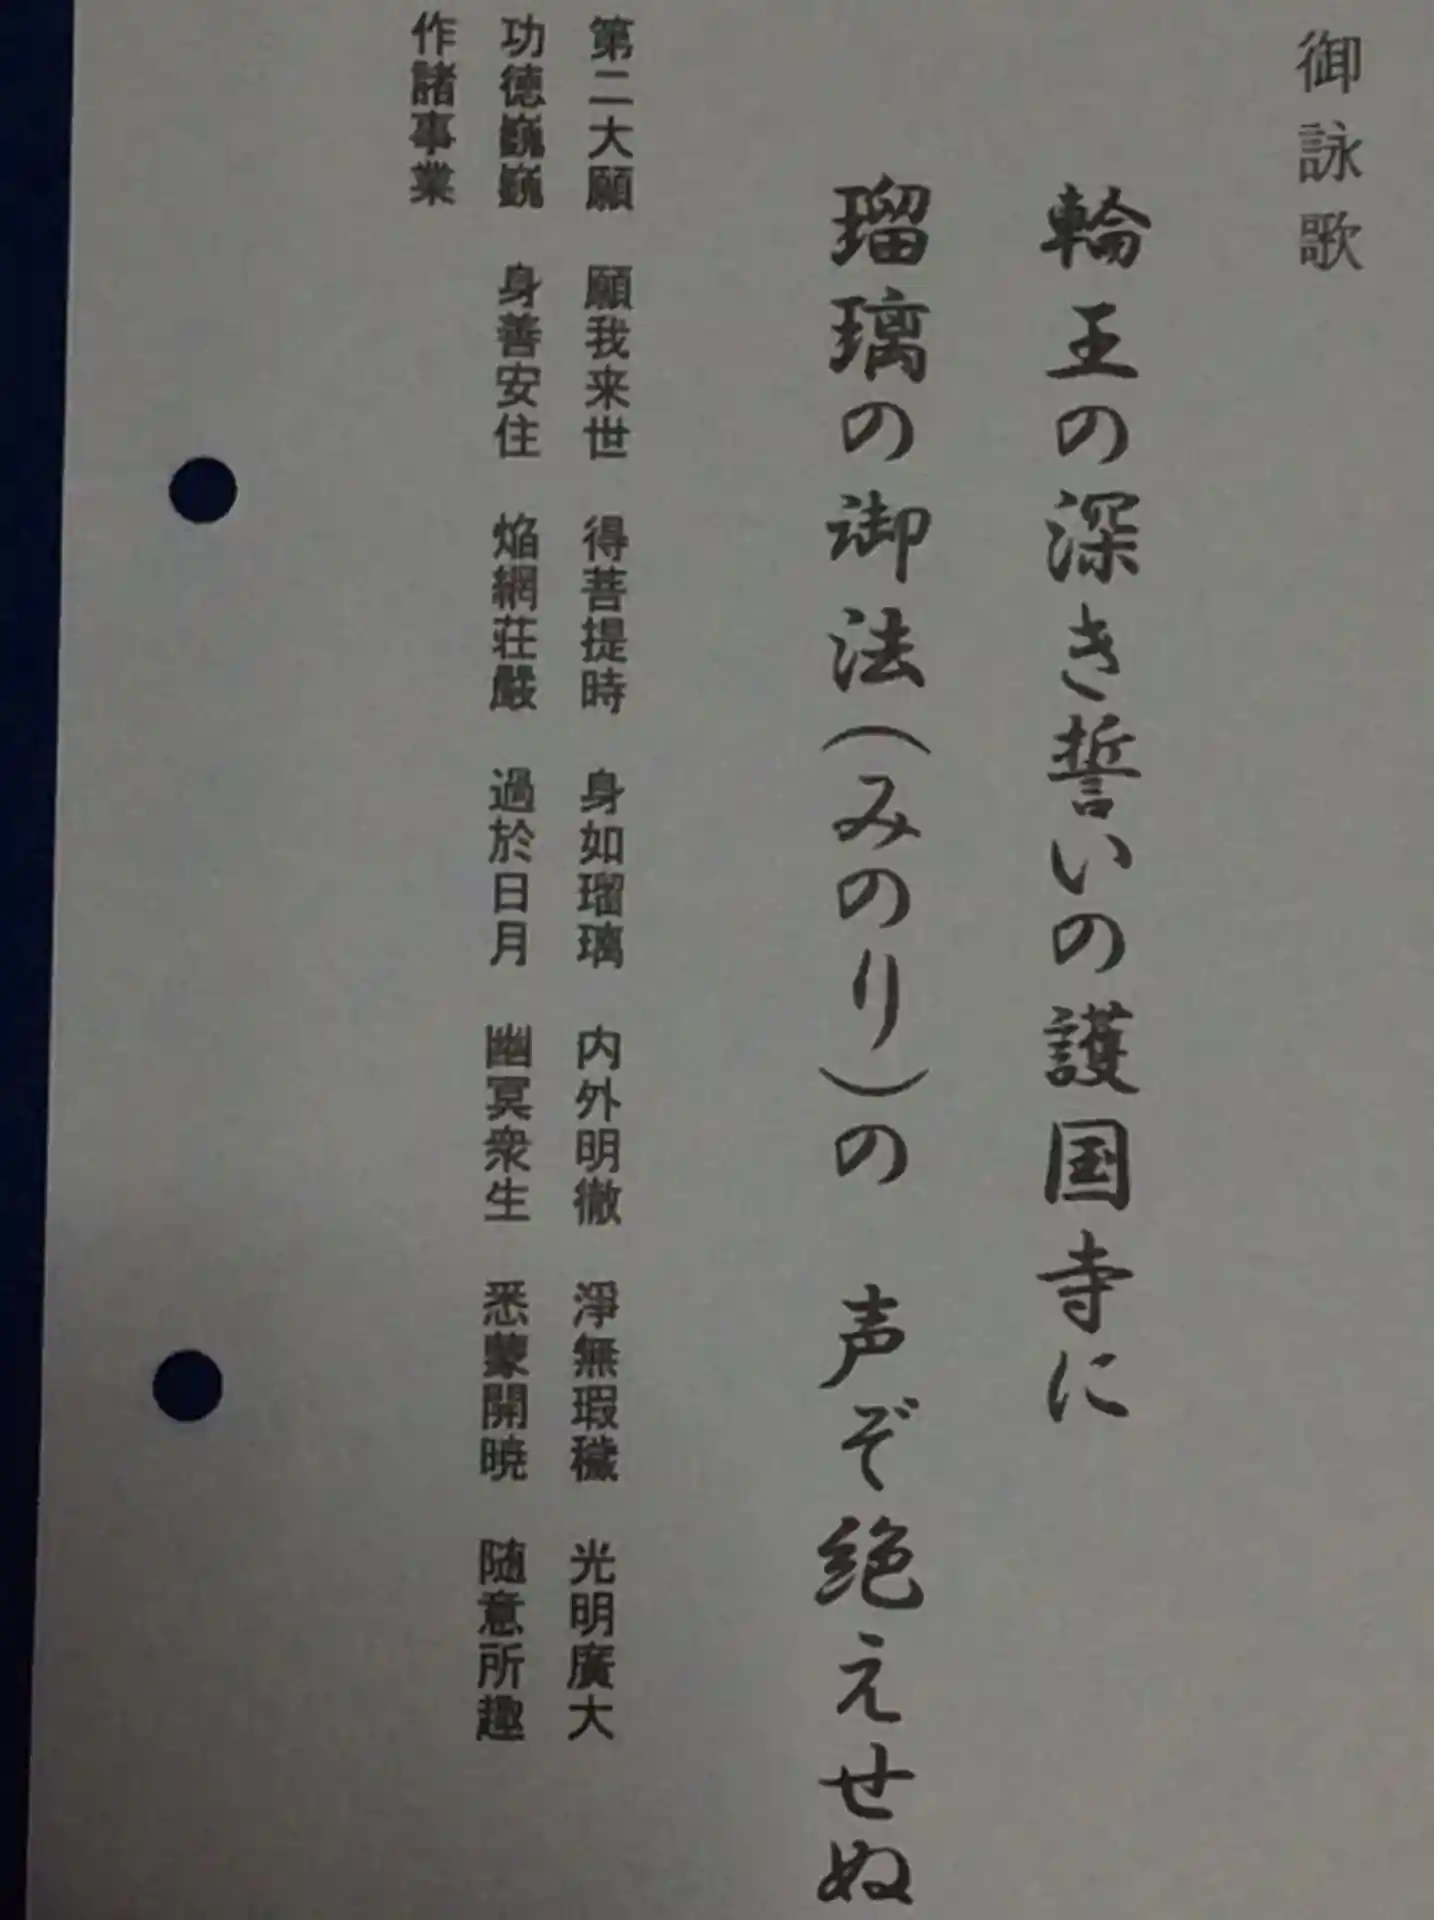 御詠歌
輪王の深き誓いの護国寺に
瑠璃の御法(みのり)の　声ぞ絶えせぬ
第二大願　願我来世　得菩提時　身如瑠璃　内外明徹　淨無瑕穢　光明廣大
功徳巍巍　身善安住　焔網荘嚴　過於日月　幽冥衆生　悉蒙開暁　随意所趣
作諸事業